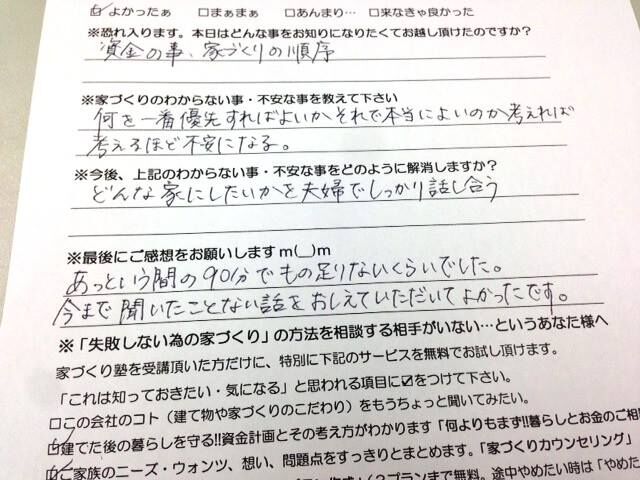 ☑よかったぁ □まぁまぁ □あんまり… □来なきゃ良かった
※恐れ入ります。本日はどんな事をお知りになりたくてお越し頂けたのですか？
資金の事、家づくりの順序
※家づくりのわからない事・不安な事を教えて下さい
何を一番優先すればよいか それで本当によいのか考えれば
考えるほど不安になる。
※今後、上記のわからない事・不安な事をどのように解消しますか？
どんな家にしたいかを夫婦でしっかり話し合う
※最後にご感想をお願いしますm(__)m
あっという間の90分でもの足りないくらいでした。
今まで聞いたことない話をおしえていただいてよかったです。
※「失敗しない為の家づくり」の方法を相談する相手がいない…というあなた様へ
家づくり塾を受講頂いた方だけに、特別に下記のサービスを無料でお試し頂けます。
「これは知っておきたい・気になる」と思われる項目に☑をつけて下さい。
□この会社のコト（建て物や家づくりのこだわり）をもうちょっと聞いてみたい。
☑建てた後の暮らしを守る!!資金計画とその考え方がわかります「何よりもまず!!暮らしとお金のご相
☑ご家族のニーズ・ウォンツ、想い、問題点をすっきりとまとめます。「家づくりカウンセリング」
プランまで無料。途中やめたい時は「やめた